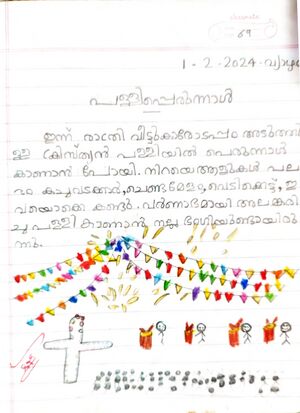 69
1-2-2024-വ്യാഴം
പള്ളിപ്പെരുന്നാൾ
ഇന്ന് രാത്രി വീട്ടുകാരോടൊപ്പം അടുത്ത
ള്ള ക്രിസ്ത്യൻ പള്ളിയിൽ പെരുന്നാൾ
കാണാൻ പോയി. നിറയെ ആളുകൾ പല
തരം കച്ചവടക്കാർ, ചെണ്ടമേളം, വെടിക്കെട്ട്, ഇ
വയൊക്കെ കണ്ടു. വർണാഭമായി അലങ്കരി
ച്ച പള്ളി കാണാൻ നല്ല ഭംഗിയുണ്ടായിരു
ന്നു.